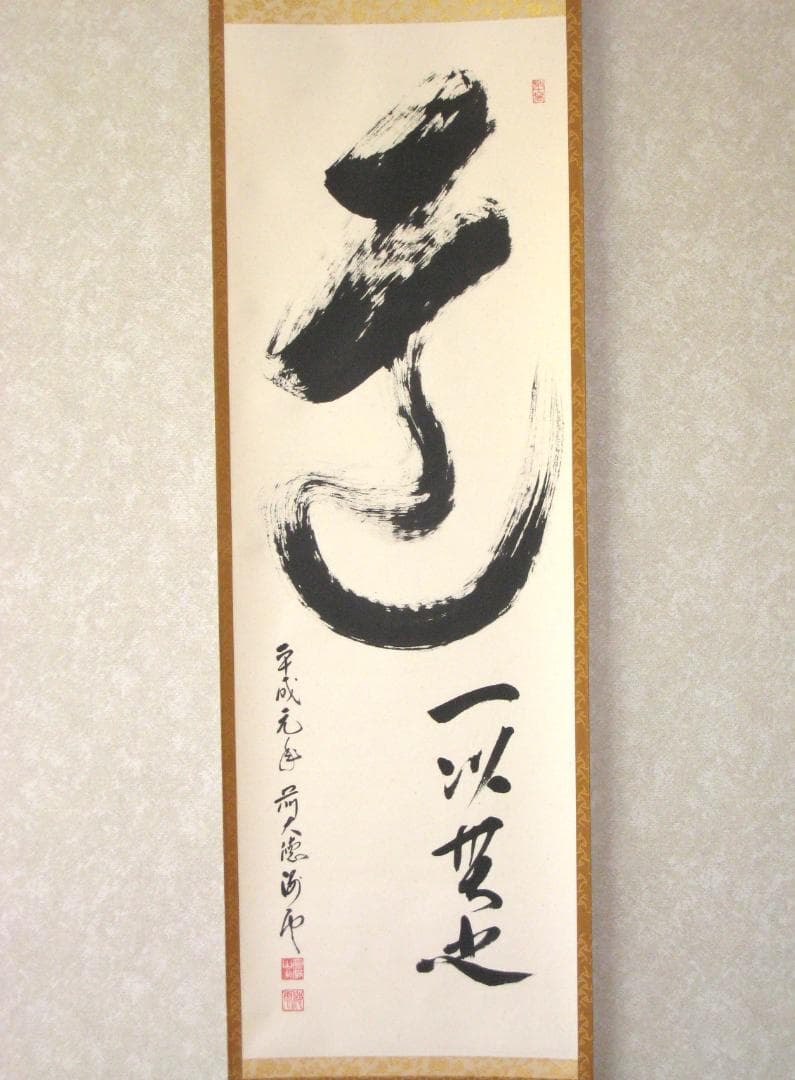 道
一以貫之
平成元年 前大徳